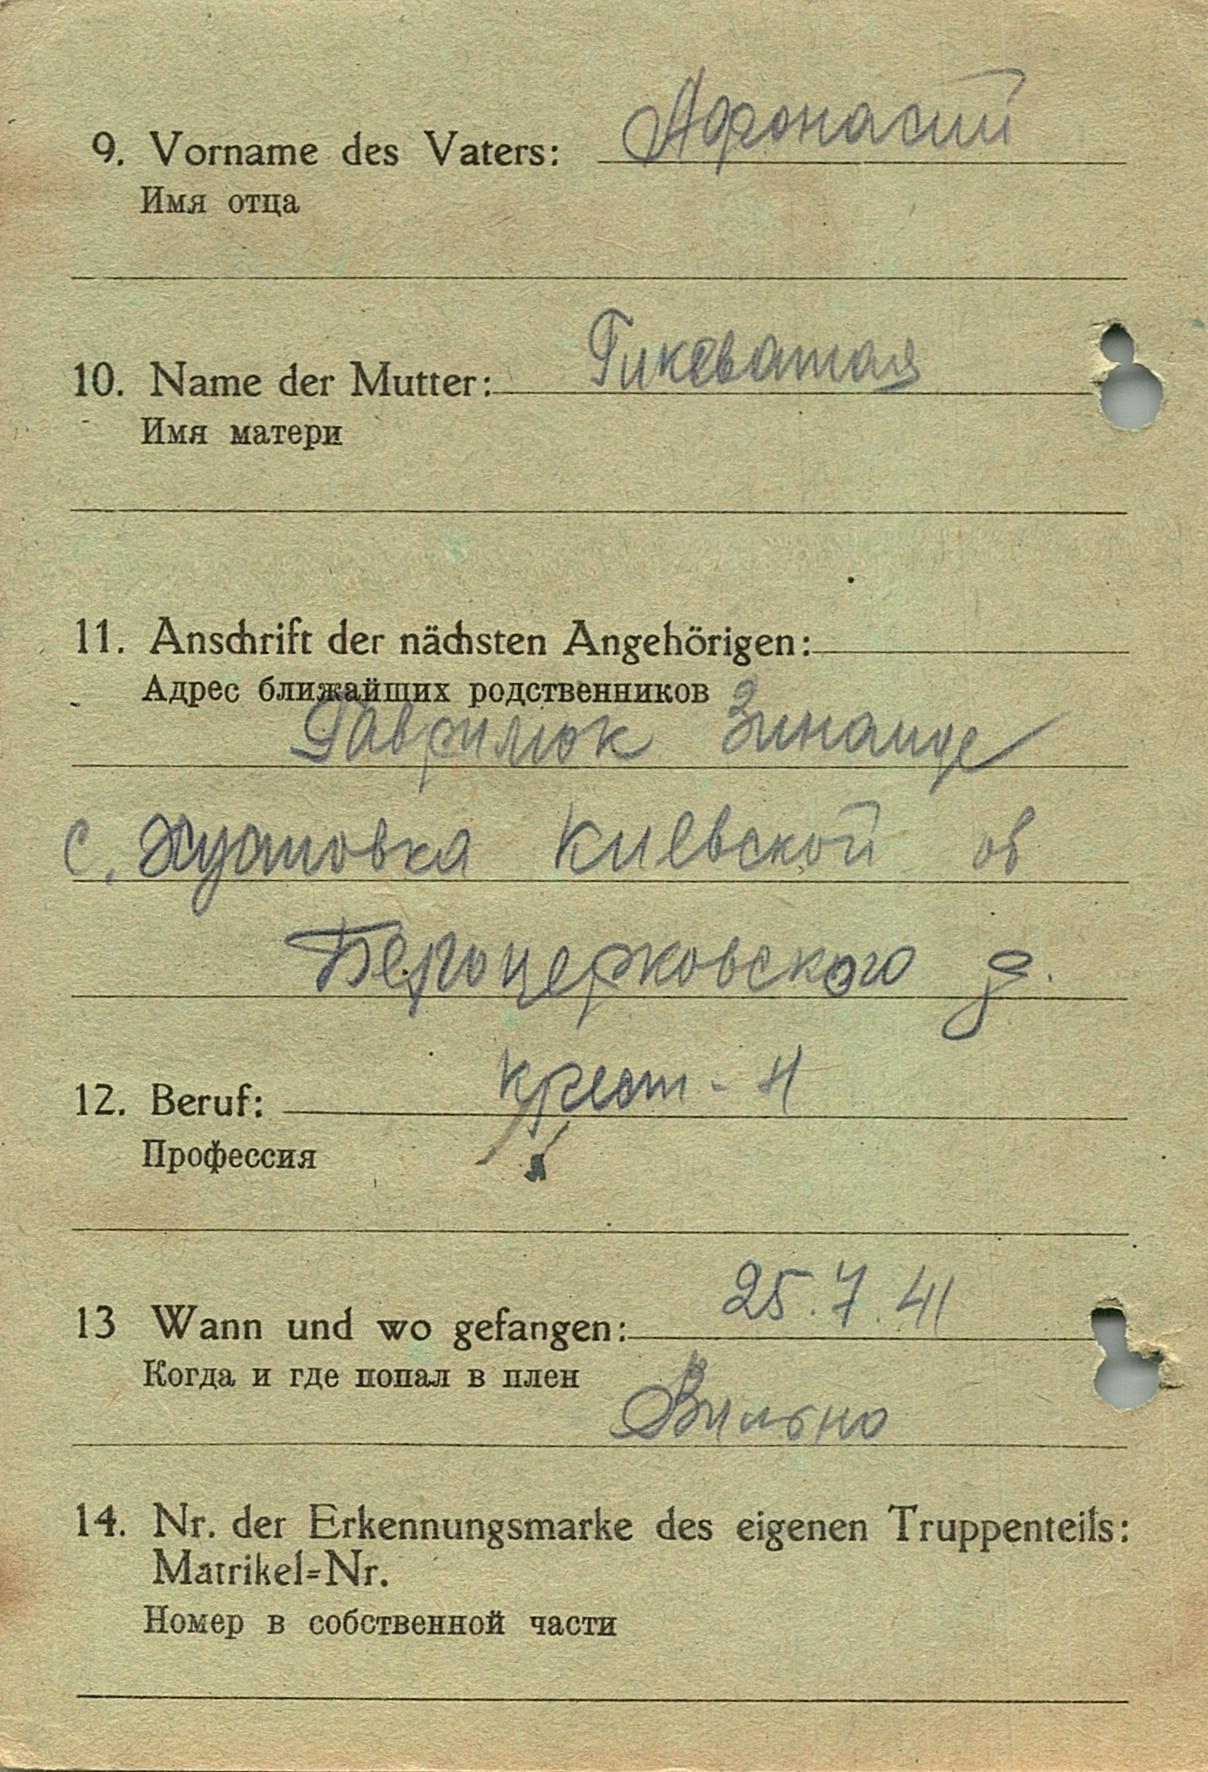 9. Vorname des Vaters: Афонасий
Имя отца
10. Name der Mutter: Гикеватая
Имя матери
11. Anschrift der nächsten Angehörigen:
Адрес ближайших родственников
Гаврилюк Зинаиде
с. Киевской об
Белоцерковского
12. Beruf: крест-н
Профессия
13 Wann und wo gefangen: 25.7.41
Когда и где попал в плен
Вильно
14. Nr. der Erkennungsmarke des eigenen Truppenteils:
Matrikel=Nr.
Номер в собственной части